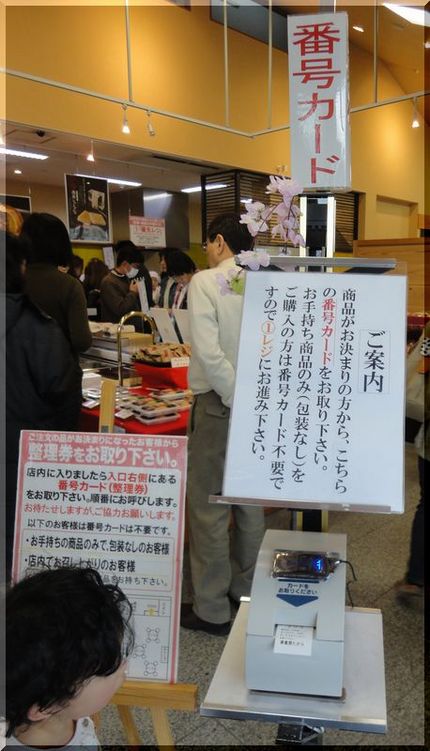 番号カード
ご案内
商品がお決まりの方から、こちら
の番号カードをお取り下さい。
お手持ち商品のみ(包装なし)を
ご購入の方は番号カード不要で
すので①レジにお進み下さい。
ご注文の品がお決まりになったお客様から
整理券をお取り下さい。
店内に入りましたら入口右側にある
番号カード(整理券)
をお取り下さい。順番にお呼びします。
お待たせしますが、ご協力お願いします。
以下のお客様は番号カードは不要です。
・お手持ちの商品のみで、包装なしのお客様
・店内でお召し上がりのお客様
お持ち下さい。
カードを
お取りください